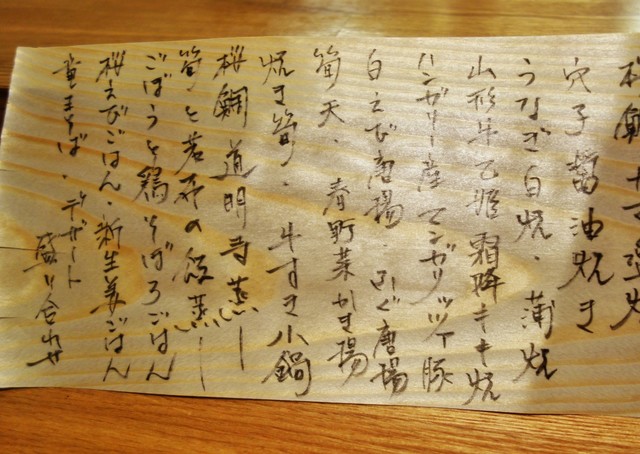 桜鯛
穴子醤油焼き
うなぎ白焼・蒲焼
山形牛乙姫霜降キキ焼
ハンガリー産マンガリッツァ豚
白えび唐揚・ふぐ唐揚
筍天・春野菜かき揚
焼き筍・牛すき小鍋
桜鯛道明寺蒸し
筍と若布の飯蒸し
ごぼうと鶏そぼろごはん
桜えびごはん・新生姜ごはん
竜王そば・デザート
盛り合わせ